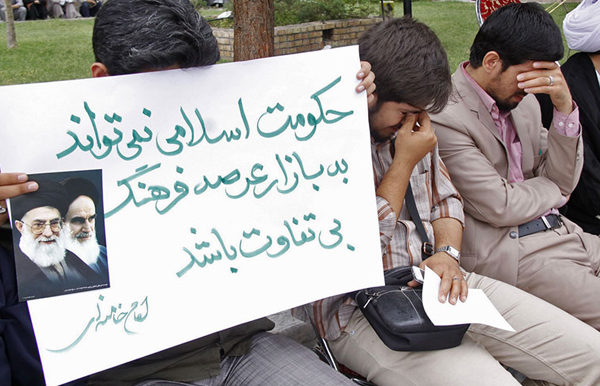 حکومت اسلامی نمی تواند
به بازار عرصه فرهنگ
بی تفاوت باشد
امام خامنه ای